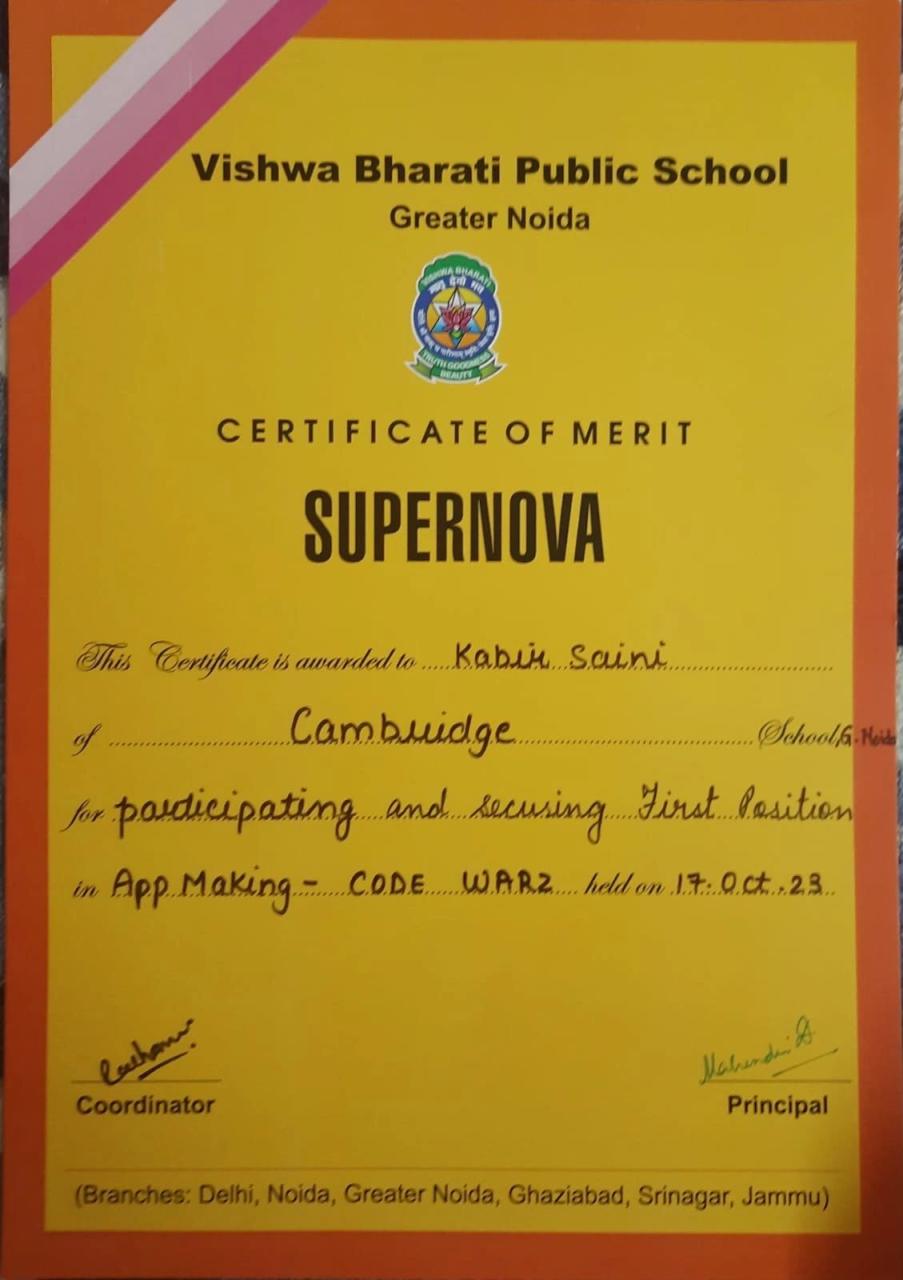 Vishwa Bharati Public School
Greater Noida
VISHWA BHARATI
TRUTH GOODNESS
BEAUTY
CERTIFICATE OF MERIT
SUPERNOVA
This Certificate is awarded to Kabir Saini
of Cambridge School, G. Noida
for participating and securing First Position
in App Making - CODE WARZ held on 17. Oct. 23
Coordinator
Principal
(Branches: Delhi, Noida, Greater Noida, Ghaziabad, Srinagar, Jammu)